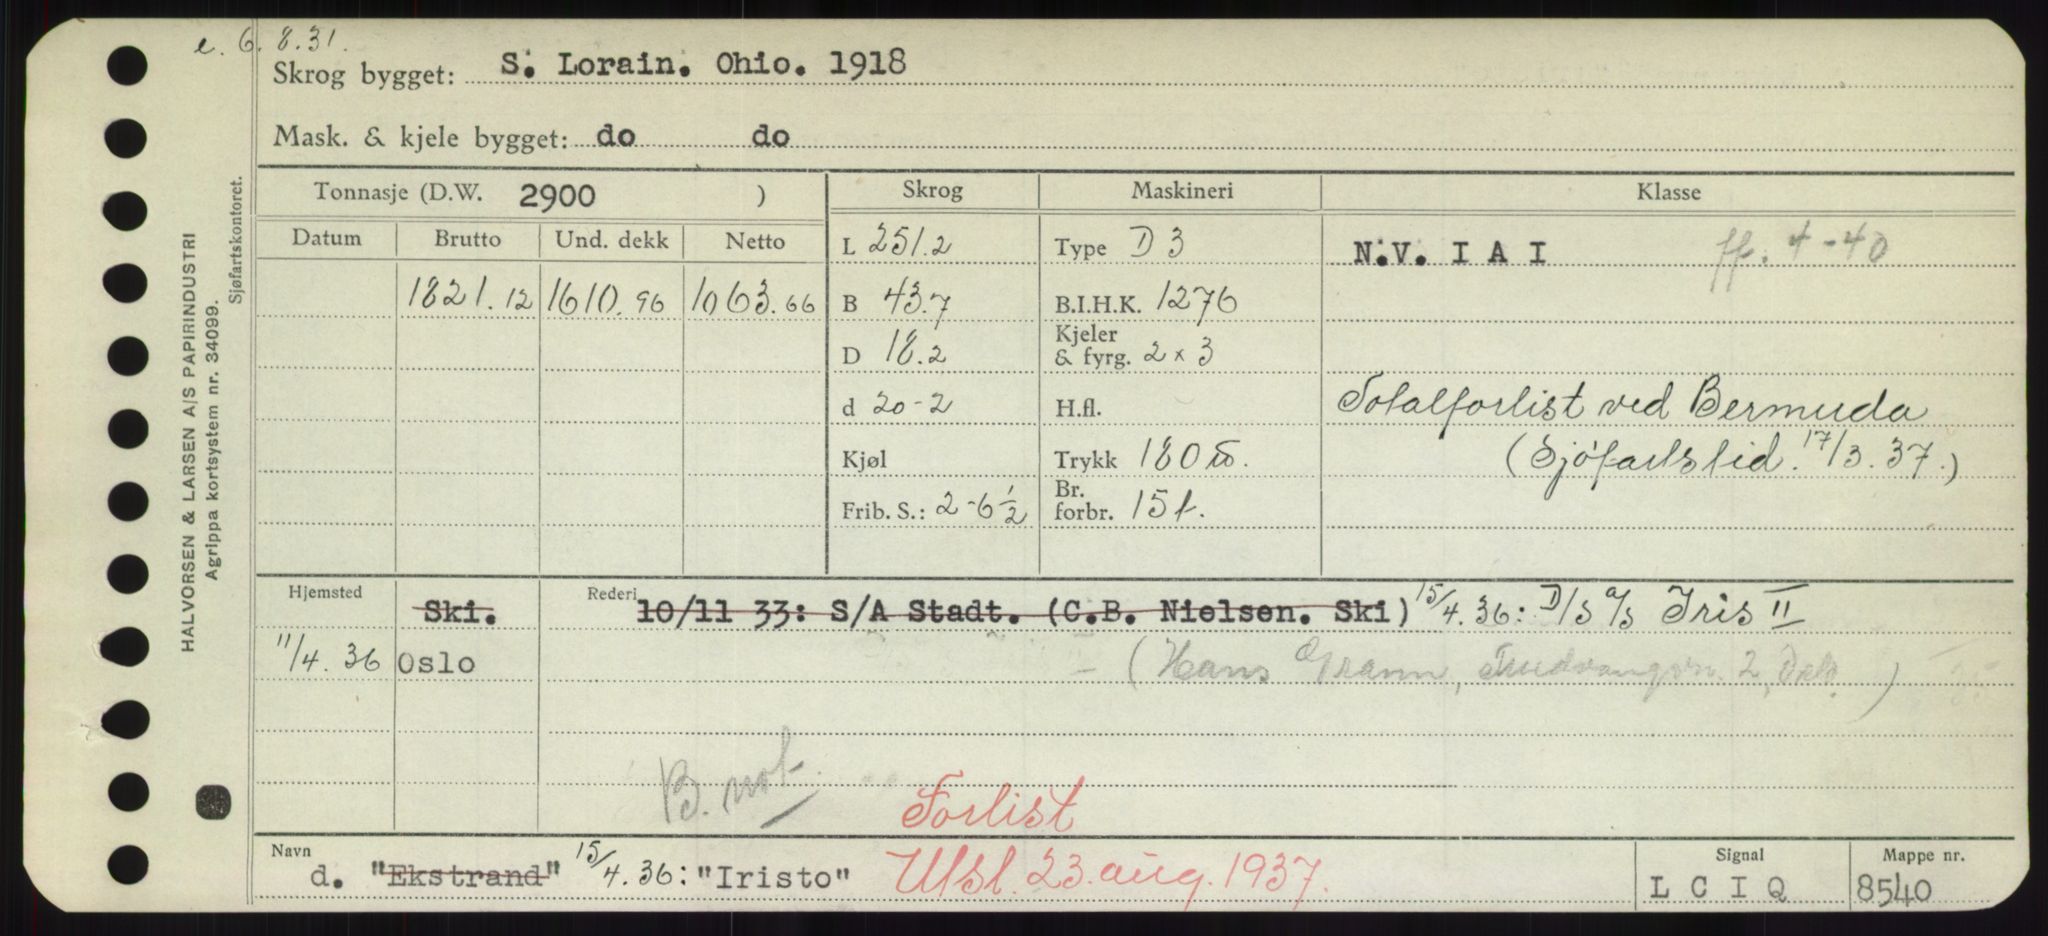 e. 6. 8. 31.
Skrog bygget: S. Lorain. Ohio. 1918
Mask. & kjele bygget: do do
Tonnasje (D.W. 2900 ) Skrog Maskineri Klasse
Datum Brutto Und. dekk Netto L 251.2 Type D 3 N.V. I A I ff. 4-40
1821.12 1610.96 1063.66 B 43.7 B.I.H.K. 1276
D 18.2 Kjeler & fyrg. 2 x 3
d 20-2 H.fl. Totalforlist ved Bermuda
Kjøl Trykk 180 (Sjöfartstid. 17/3. 37.)
Frib. S.: 2-6 1/2 Br. forbr. 15 t.
Hjemsted Ski. Rederi 10/11 33: S/A Stadt. (C.B. Nielsen. Ski) 15/4. 36: D/S A/S Iris II
11/4. 36 Oslo - (Hans Gram, 2, Oslo)
B. not
Forlist
Navn d. "Ekstrand" 15/4. 36: "Iristo" Utsl. 23. aug. 1937. Signal L C I Q Mappe nr. 8540
HALVORSEN & LARSEN A/S PAPIRINDUSTRI
Agrippa kortsystem nr. 34099.
Sjøfartskontoret.